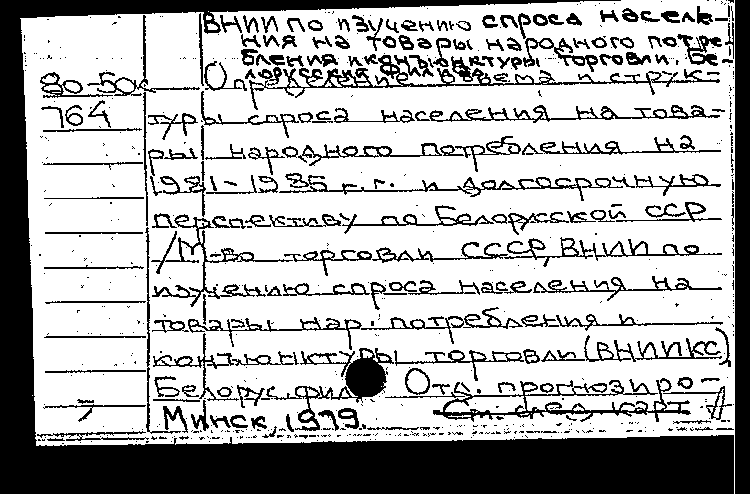 ВНИИ по изучению спроса населе-
ния на товары народного потре-
бления и конъюнктуры торговли. Бе-
лорусский филиал
80-50к Определение объема и струк-
764 туры спроса населения на това-
ры народного потребления на
1981-1985 г.г. и долгосрочную
перспективу по Белорусской ССР
/М-во торговли СССР, ВНИИ по
изучению спроса населения на
товары нар. потребления и
конъюнктуры торговли (ВНИИКС)
Белорус. фил. Отд. прогнозиро-
Минск, 1979. См. след. карт.